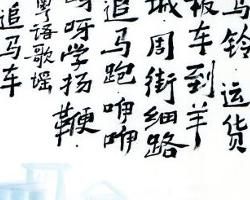 马铃．运货
板车到羊
城．周街细路
追马跑咿咿
呀学扬鞭．
粤语歌谣
追马车